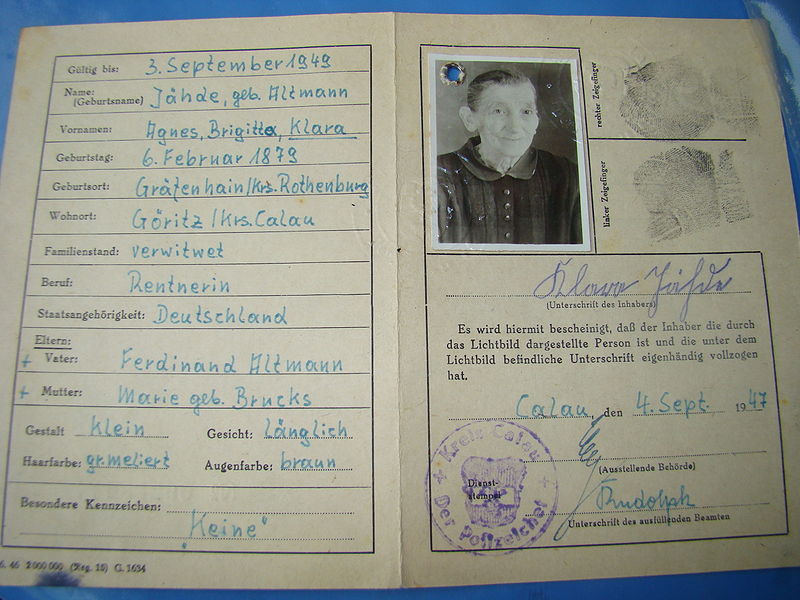 Gültig bis: 3. September 1949
Name: (Geburtsname) Jähde, geb. Altmann
Vornamen: Agnes, Brigitta, Klara
Geburtstag: 6. Februar 1879
Geburtsort: Gräfenhain/Krs. Rothenburg
Wohnort: Göritz/Krs. Calau
Familienstand: verwitwet
Beruf: Rentnerin
Staatsangehörigkeit: Deutschland
Eltern:
+ Vater: Ferdinand Altmann
+ Mutter: Marie geb. Brucks
Gestalt Klein Gesicht: länglich
Haarfarbe: gr. meliert Augenfarbe: braun
Besondere Kennzeichen:
"Keine"
6. 46 2 000 000 (Reg. 15) G. 1634
rechter Zeigefinger
linker Zeigefinger
Klara Jähde
(Unterschrift des Inhabers)
Es wird hiermit bescheinigt, daß der Inhaber die durch
das Lichtbild dargestellte Person ist und die unter dem
Lichtbild befindliche Unterschrift eigenhändig vollzogen
hat.
Calau, den 4. Sept. 1947
(Ausstellende Behörde)
Dienst-
stempel
Kreis Calau
Der Polizeichef
Rudolph
Unterschrift des ausfüllenden Beamten